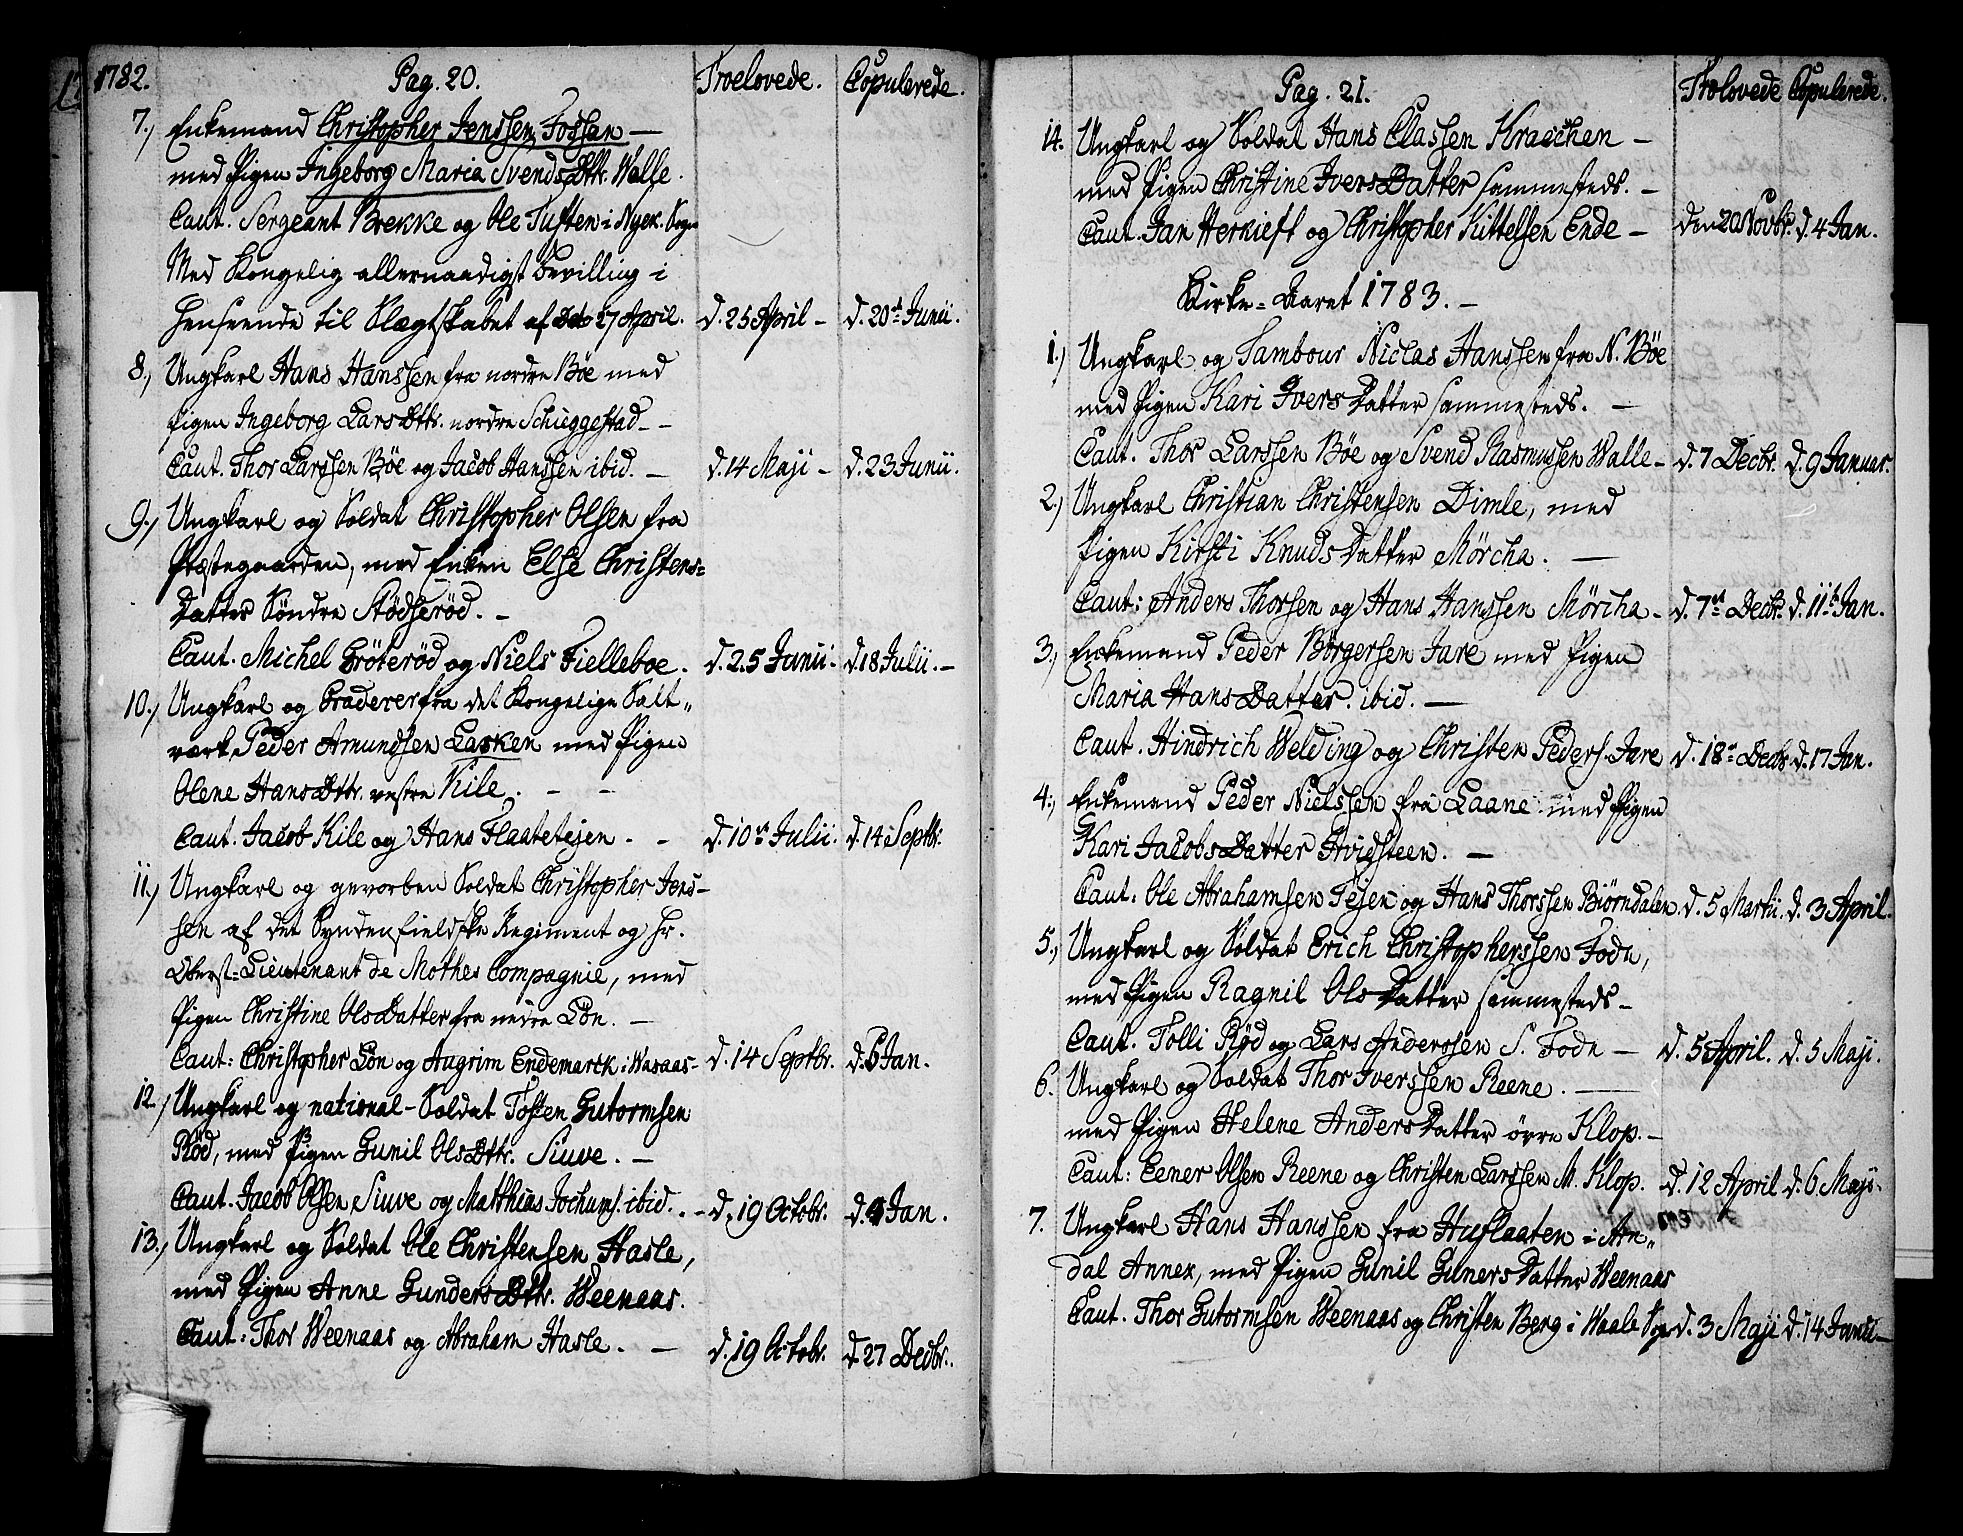 1782.
Pag. 20.
Troelovede.
Copulerede.
7.) Enkemand Christopher Jenssen Fossan —
med Pigen Ingeborg Maria Svends Dttr. Walle.
Caut. Sergeant Brekke og Ole Tuften i Nyek. Sogn
Med Kongelig allernaadigst bevilling i
henseende til Slægtskabet af 27 April. d. 25 April – d. 20de Junii.
8.) Ungkarl Hans Hanssen fra nordre Böe med
pigen Ingeborg Lars Dttr. nordre Schieggestad – –
Caut. Thor Larssen Böe og Jacob Hanssen ibid. — d. 14 Maji – d. 23 Junii.
9.) Ungkarl og Soldat Christopher Olsen fra
Præstegaarden, med Enken Else Christens=
Datter Söndre Stödseröd. –
Caut. Michel Gröteröd og Niels Fielleboe. d. 25 Junii. d. 18 Julii. –
10.) Ungkarl og Graderer fra det Kongelige Salt„
værk, Peder Amundsen Lasken med Pigen
Olene Hans Dttr. vestre Kile. – –
Caut. Jacob Kile og Hans Flaatetejen. – d. 10de Julii. d. 14 Septbr.
11.) Ungkarl og gevorben Soldat Christopher Jens–
sen af det Syndenfieldske Regiment og Hr.
Oberst=Lieutenant de Mothes Compagnie, med
Pigen Christine Ols Datter fra nedre Lön. —
Caut: Christopher Lön og Augrim Endemarck i Wasaas– d. 14 Septbr. d. 6 Jan.
12.) Ungkarl og national–Soldat Tosten Gutormsen
Röd, med Pigen Gunil Ols Dttr. Siuve. —
Caut. Jacob Olsen Siuve og Matthias Jochums. ibid. . – d. 19 Octobr. d. 4 Jan.
13.) Ungkarl og Soldat Ole Christensen Hasle,
med Pigen Anne Gunders Dttr. Weenaas.
Caut: Thor Weenaas og Abraham Hasle. — d. 19 Octobr. d. 27 Decbr.
Pag. 21.
Trolovede
Copulerede.
14. Ungkarl og Soldat Hans Classen Kraschen –
med Pigen Christine Ivers Datter sammesteds. –
Caut. Jan Herkieft og Christopher Kittelsen Ende – den 20 Novbr. d. 4 Jan.
Kirke=Aaret 1783. –
1.) Ungkarl og Tambour Niclas Hanssen fra N. Böe
med Pigen Kari Ivers Datter sammesteds. —
Caut. Thor Larssen Böe og Svend Rasmussen Walle – d. 7 Decbr. d. 9 Januar.
2.) Ungkarl Christian Christensen Dimle, med
Pigen Kirsti Knuds Datter Mörcha. —
Caut: Anders Thorsen og Hans Hanssen Mörcha – d. 7de Decbr. d. 11te Jan.
3.) Enkemand Peder Börgersen Jare med Pigen
Maria Hans Datter. ibid. —
Caut. Hindrich Welding og Christen Peders. Jare d. 18de Decbr. d. 17 Jan.
4.) Enkemand Peder Nielssen fra Laane med Pigen
Kari Jacobs Datter Hvidsteen. —
Caut: Ole Abrahamsen Tejen og Hans Thorssen Biörndalen. d. 5 Martii. d. 3 April.
5.) Ungkarl og Soldat Erich Christopherssen Fodn,
med Pigen Ragnil Ols Datter sammesteds –
Caut. Tolli Röd og Lars Anderssen S. Fodn — d. 5 April. d. 5 Maji.
6. Ungkarl og Soldat Thor Iverssen Reene. —
med Pigen Helene Anders Datter övre Klop. –
Caut: Eener Olsen Reene og Christen Larssen M. Klop. d. 12 April d. 6 Maji.
7. Ungkarl Hans Hanssen fra Huflaaten i An„
dal Annex, med Pigen Gunil Guners Datter Weenaas
Caut. Thor Gutormsen Weenaas og Christen Berg i Waale Sogn d. 3 Maji d. 14 Junii –